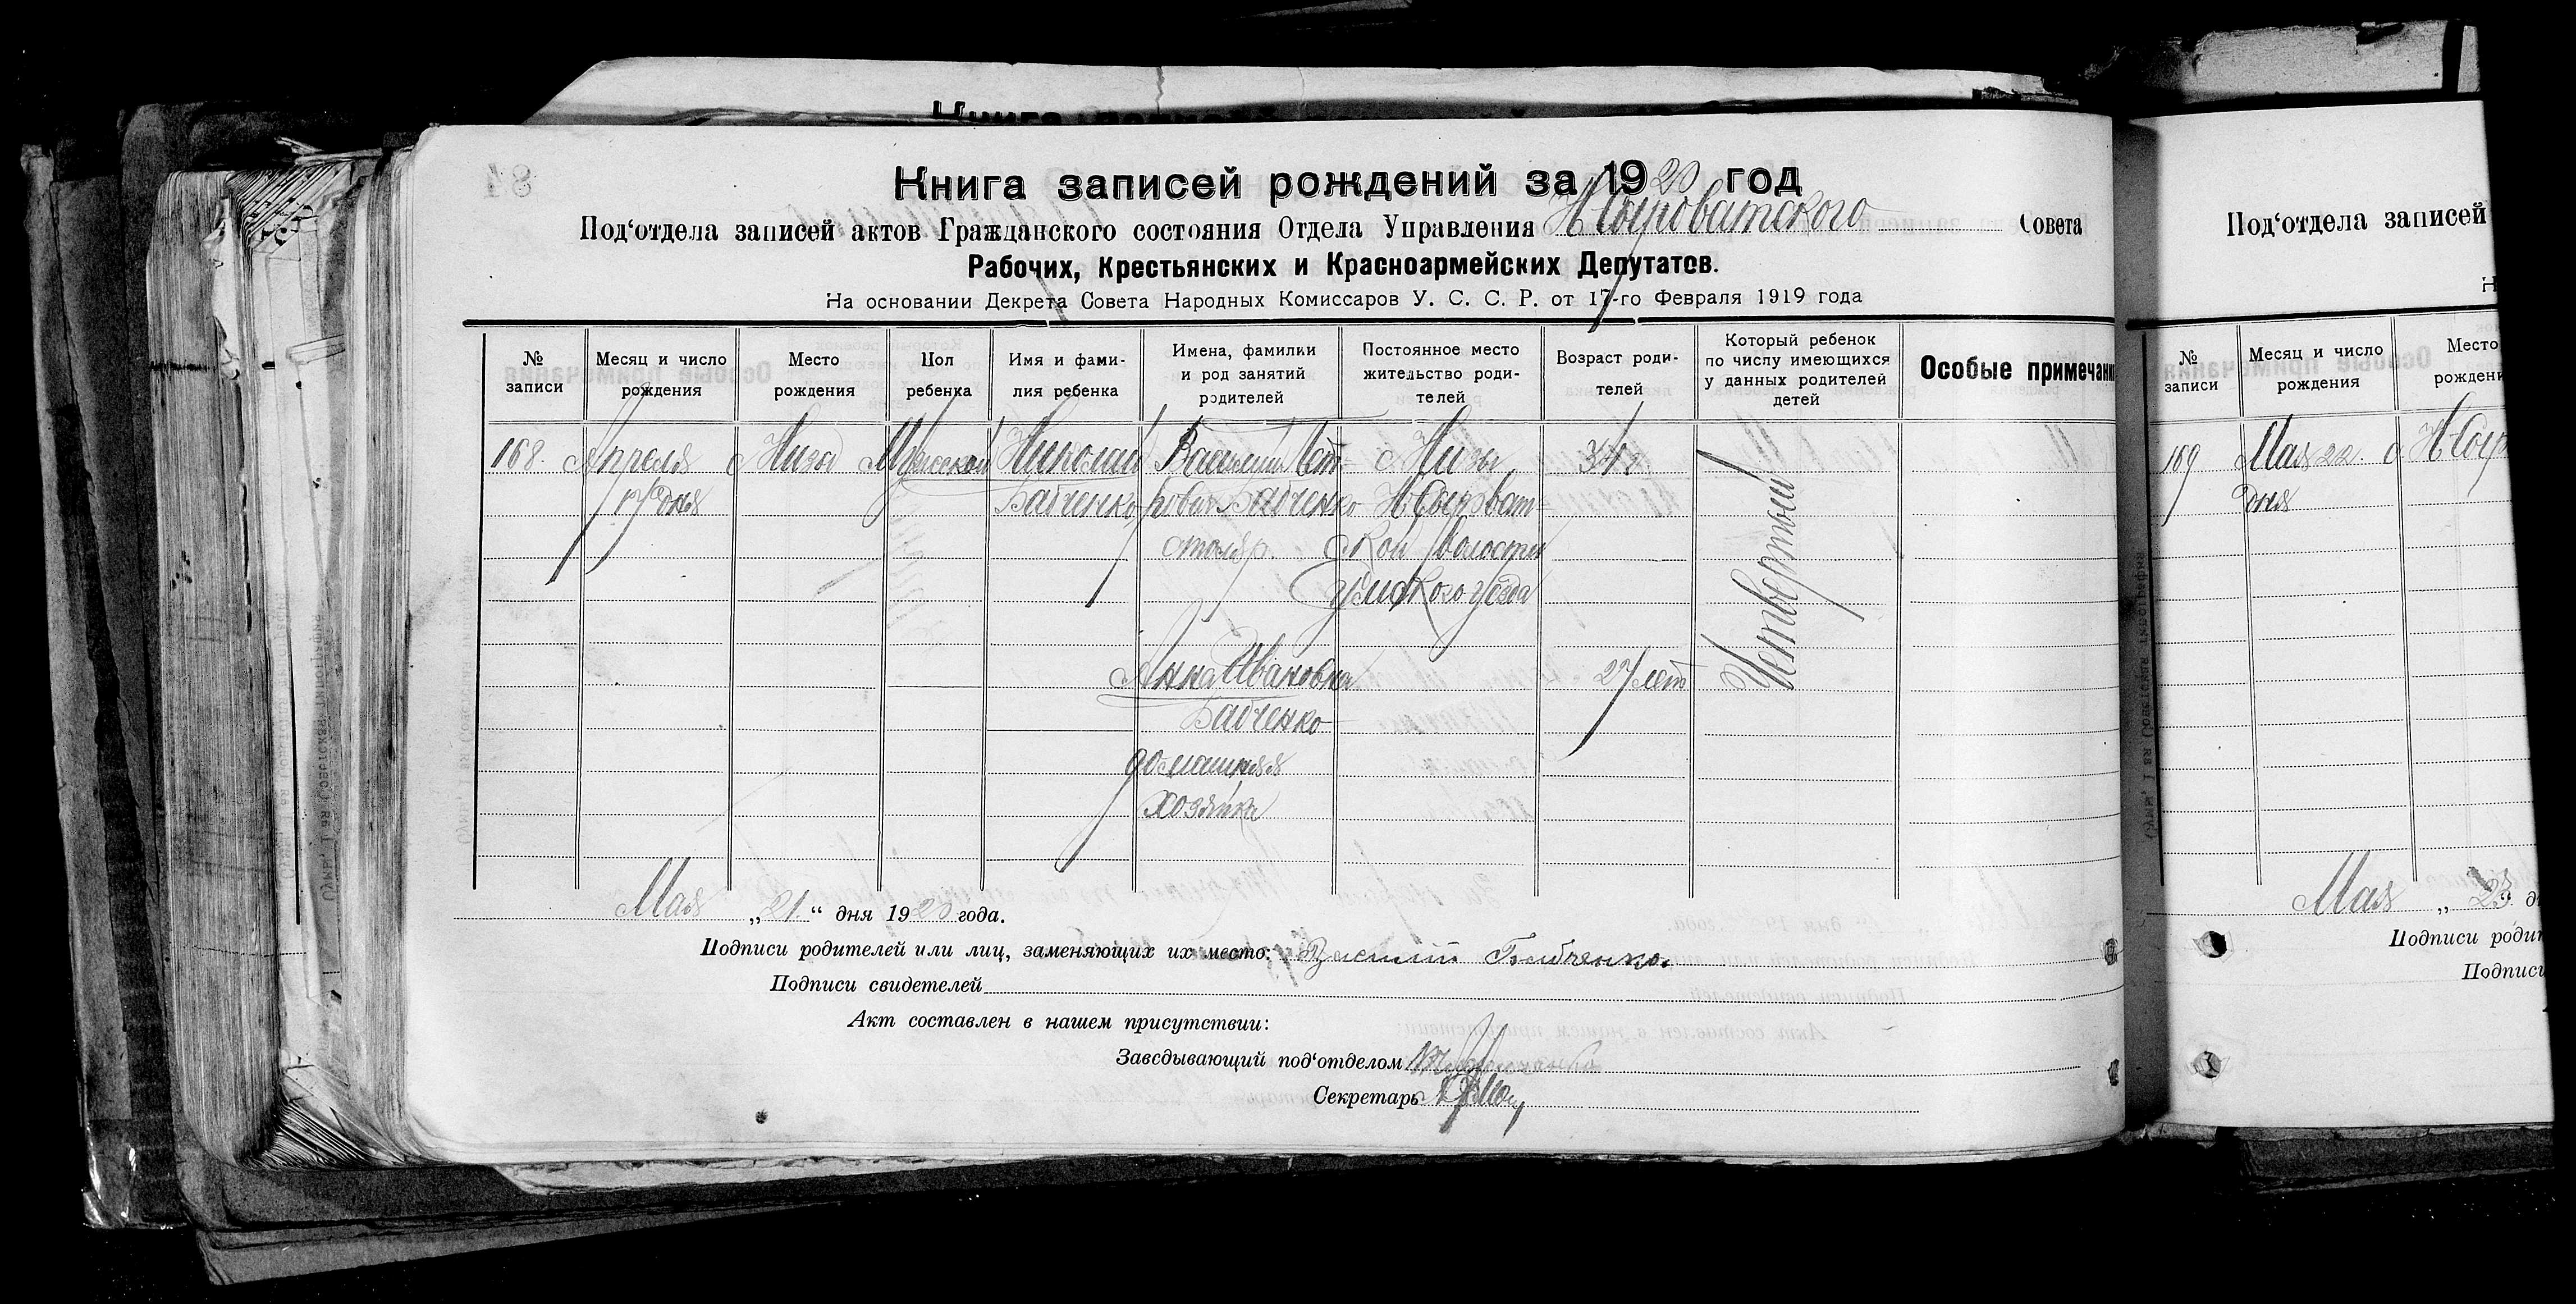 Книга записей рождений за 1920 год
Под‘отдела записей актов Гражданского состояния Отдела Управления Н Сыроватского Совета
Рабочих, Крестьянских и Красноармейских Депутатов.
На основании Декрета Совета Народных Комиссаров У. С. С. Р. от 17-го Февраля 1919 года
№ записи
Месяц и число рождения
Место рождения
Пол ребенка
Имя и фами-
лия ребенка
Имена, фамилии
и род занятий
родителей
Постоянное место
жительство роди-
телей
Возраст роди-
телей
Который ребенок
по числу имеющихся
у данных родителей
детей
Особые примечани
168. Апреля с Низы Мужской Николай Василий Пет- с Низы
17 дня Бабченко рович Бабченко Н Сыроват-
столяр ской волости
Сумского уезда
Четвертый
Анна Ивановна 27 лет
Бабченко
домашняя
хозяйка
Мая „21“ дня 1920 года.
Подписи родителей или лиц, заменяющих их место: Василий Бабченко.
Подписи свидетелей
Акт составлен в нашем присутствии:
Заведывающий под‘отделом
Секретарь
Под‘отдела записей
Н
№ записи
Месяц и число рождения
Место
рождени
169 Мая 22 с Н Сыр
дня
Мая „ 23 д
Подписи родит
Подписи
84